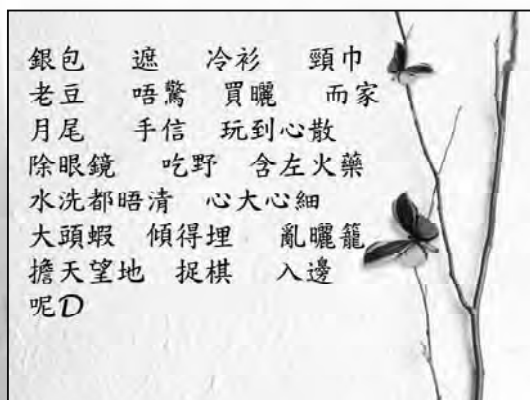 銀包 遮 冷衫 頸巾
老豆 唔驚 買曬 而家
月尾 手信 玩到心散
除眼鏡 吃野 含左火藥
水洗都唔清 心大心細
大頭蝦 傾得埋 亂曬籠
擔天望地 捉棋 入邊
呢D